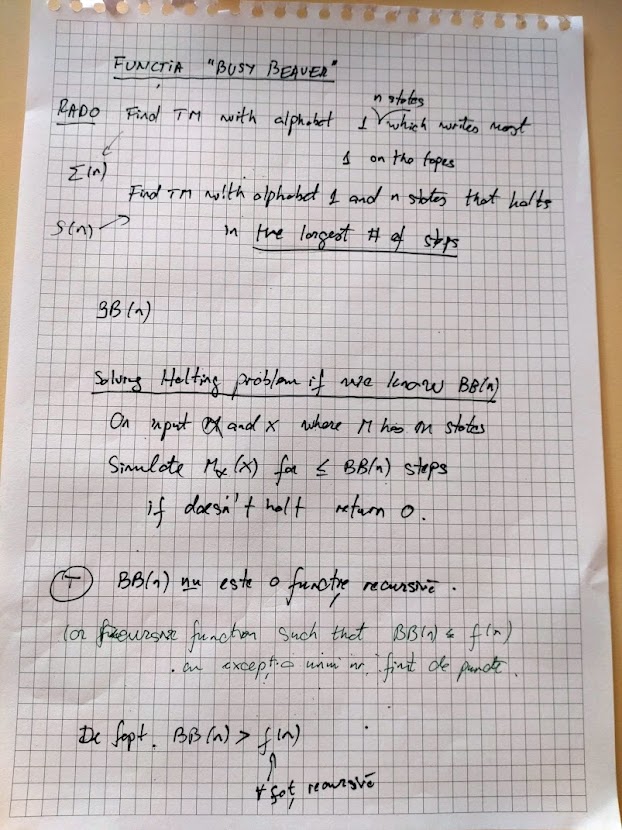 FUNCȚIA "BUSY BEAVER"
n states
RADO Find TM with alphabet 1 which writes most
1 on the tapes
Σ(n)
Find TM with alphabet 1 and n states that halts
S(n)
in the largest # of steps
BB(n)
Solving Halting problem if we know BB(n)
On input α and x where M has n states
Simulate Mα(x) for ≤ BB(n) steps
if doesn't halt return 0.
T BB(n) nu este o funcție recursivă.
(or recursive function such that BB(n) ≤ f(n)
cu excepția unui nr. finit de puncte.
De fapt. BB(n) > f(n)
∀ fct, recursivă